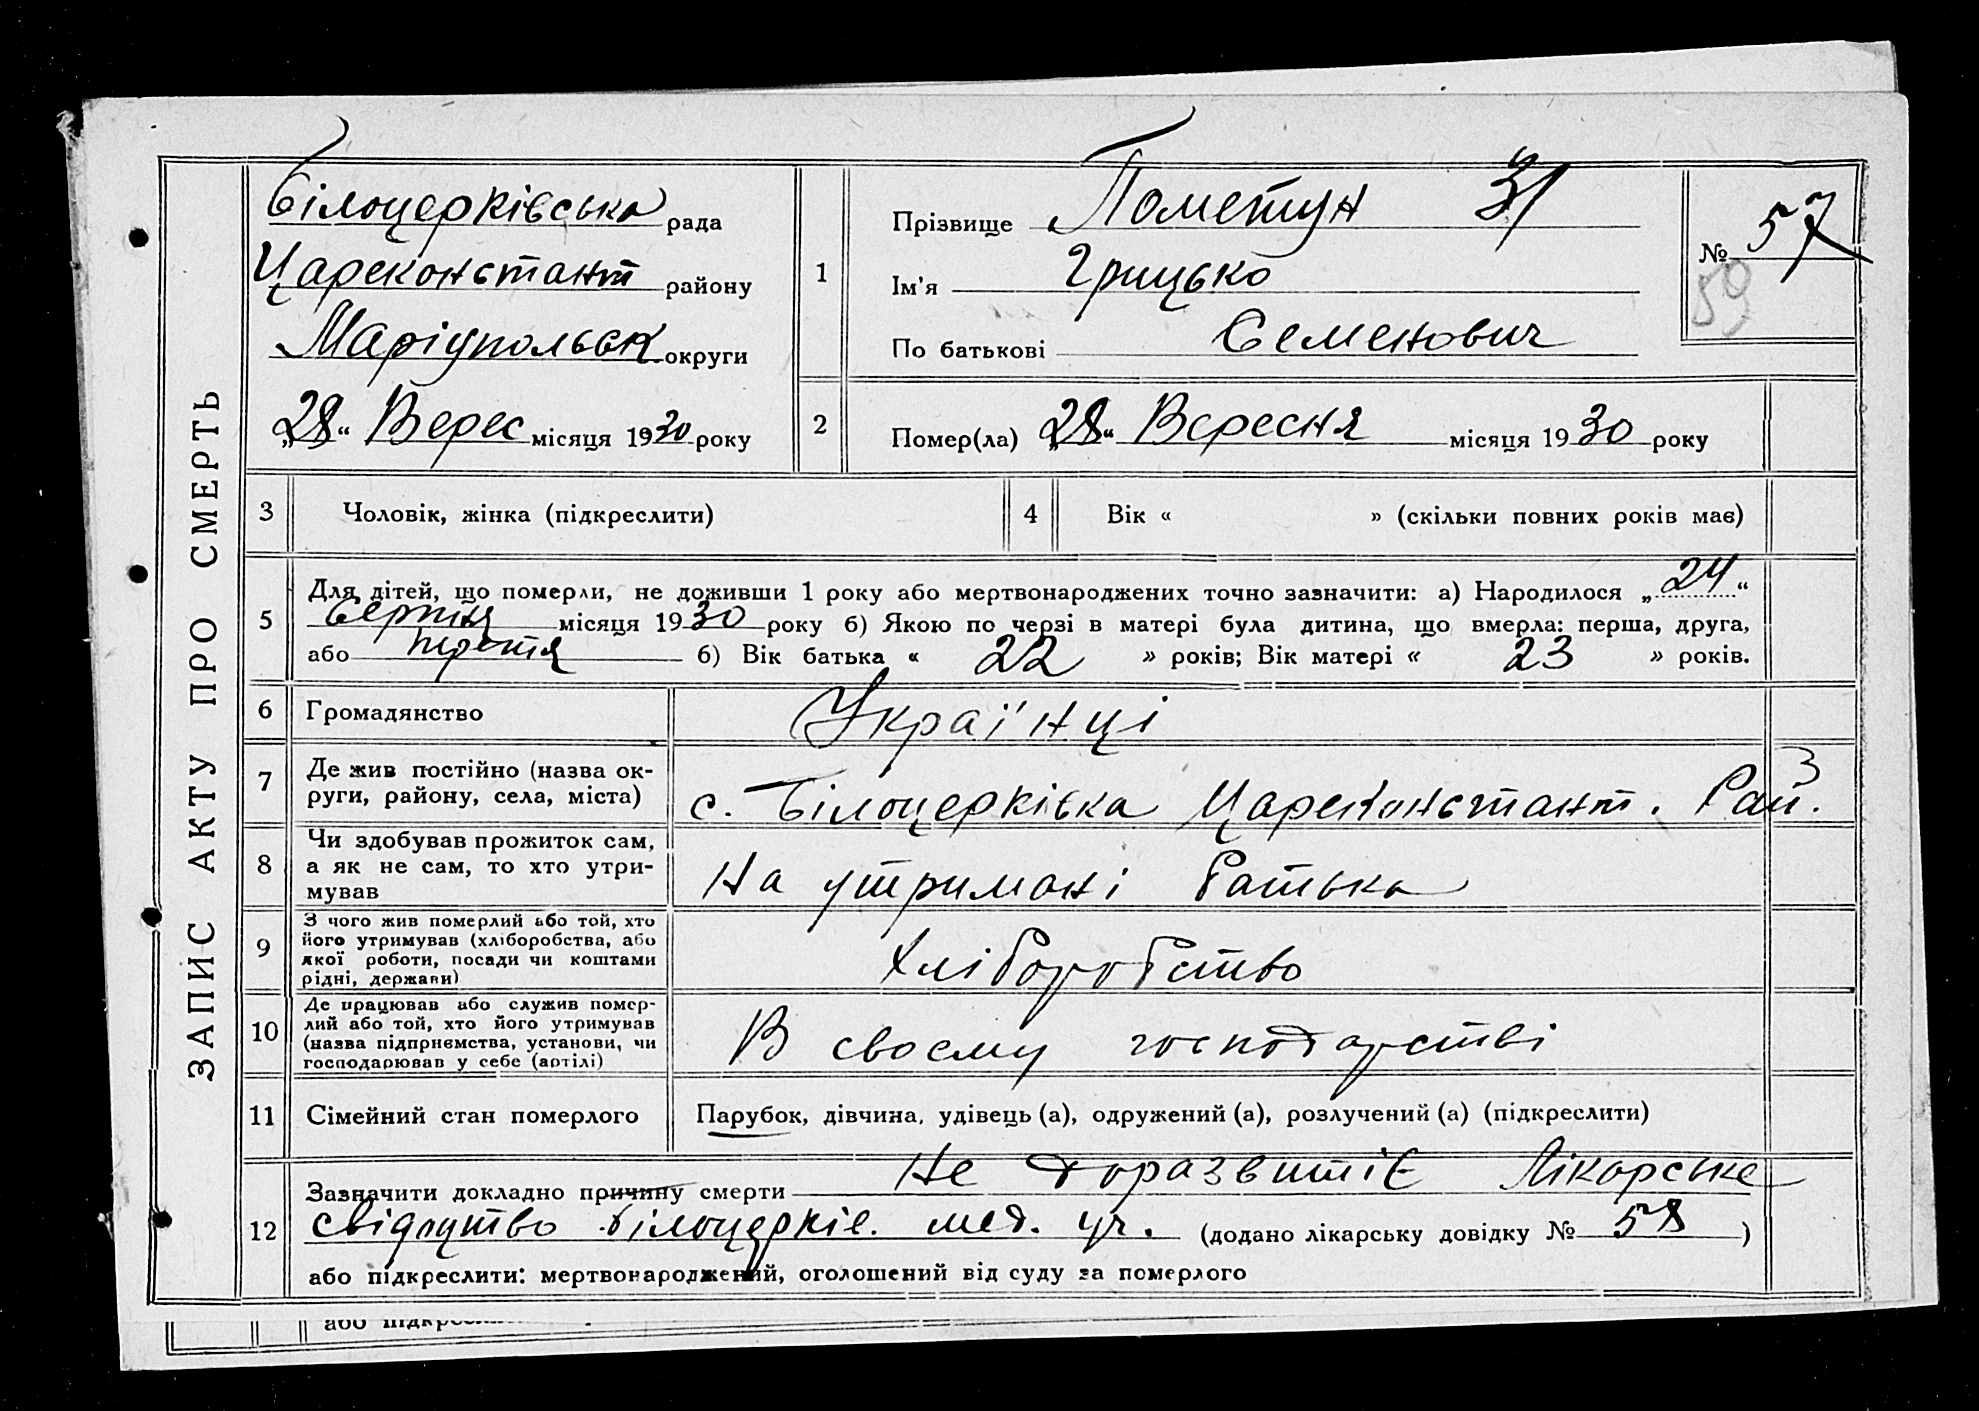 ЗАПИС АКТУ ПРО СМЕРТЬ
Білоцерківська рада
Цареконстант району
Маріупольськ округи
„28“ Верес місяця 1930 року
1
Прізвище Пометун 31
Ім'я Грицько
По батькові Семенович
№ 57
59
2
Помер(ла) „28“ Вересня місяця 1930 року
3 Чоловік, жінка (підкреслити)
4 Вік « » (скільки повних років має)
5
Для дітей, що померли, не доживши 1 року або мертвонароджених точно зазначити: а) Народилося „24“
Серпня місяця 1930 року б) Якою по черзі в матері була дитина, що вмерла: перша, друга,
або б) Вік батька « 22 » років; Вік матері « 23 » років.
6 Громадянство
Українці
7 Де жив постійно (назва ок-
руги, району, села, міста)
с. Білоцерківка Цареконстант. Рай.
3
8 Чи здобував прожиток сам,
а як не сам, то хто утри-
мував
На утримані батька
9 З чого жив померлий або той, хто
його утримував (хліборобства, або
якої роботи, посади чи коштами
рідні, держави)
Хліборобство
10 Де працював або служив помер-
лий або той, хто його утримував
(назва підприємства, установи, чи
господарював у себе (артілі)
В своєму господарстві
11 Сімейний стан померлого
Парубок, дівчина, удівець (а), одружений (а), розлучений (а) (підкреслити)
12
Зазначити докладно причину смерти Не доразвитіє Лікарське
свідоцтво білоцерків. мед. уч. (додано лікарську довідку № 58 )
або підкреслити: мертвонароджений, оголошений від суду за померлого